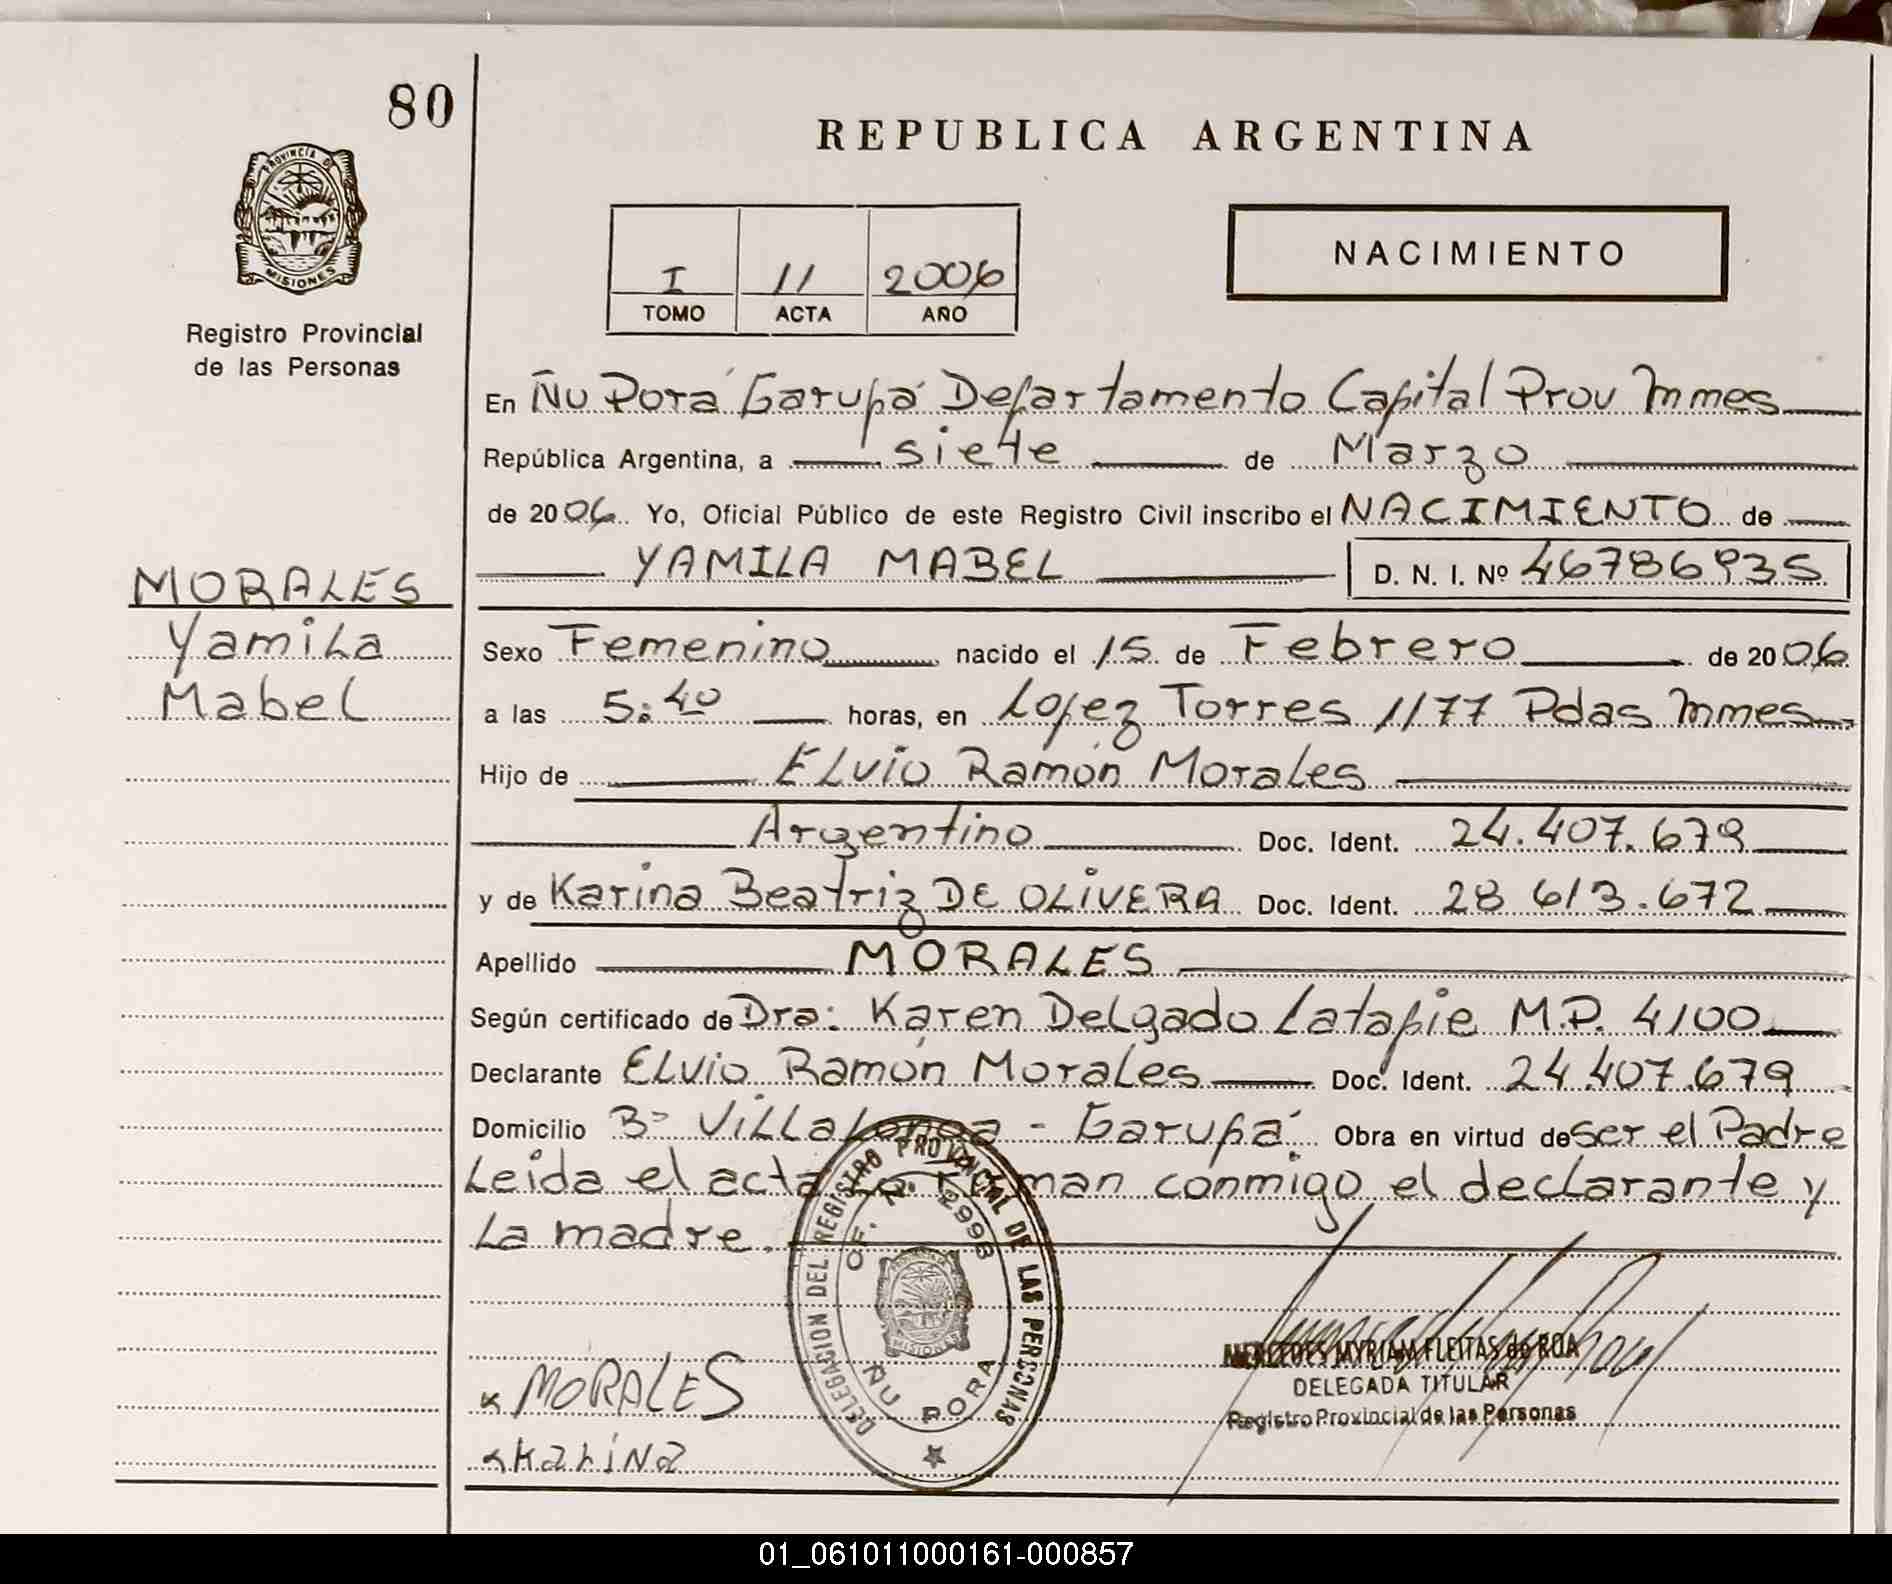 80
REPUBLICA ARGENTINA
PROVINCIA DE
MISIONES
Registro Provincial
de las Personas
I 11 2006
TOMO ACTA AÑO
NACIMIENTO
En Ñu Porá Garupá Departamento Capital Prov Mmes
República Argentina, a siete de Marzo
de 2006. Yo, Oficial Público de este Registro Civil inscribo el NACIMIENTO de
YAMILA MABEL D. N. I. Nº 46786935
MORALES
Yamila
Mabel
Sexo Femenino nacido el 15 de Febrero de 2006
a las 5:40 horas, en Lopez Torres 1177 Pdas Mmes
Hijo de Elvio Ramón Morales
Argentino Doc. Ident. 24.407.679
y de Karina Beatriz DE OLIVERA Doc. Ident. 28 613.672
Apellido MORALES
Según certificado de Dra: Karen Delgado Latapie M.P. 4100
Declarante Elvio Ramón Morales Doc. Ident. 24.407.679
Domicilio Bº Villalonga - Garupá Obra en virtud de ser el Padre
Leida el acta la firman conmigo el declarante y
la madre.
DELEGACION DEL REGISTRO PROVINCIAL DE LAS PERSONAS
OF. Nº 2998
MISIONES
ÑU PORA
MORALES
KARINA
MERCEDES MYRIAM FLEITAS de ROA
DELEGADA TITULAR
Registro Provincial de las Personas
01_061011000161-000857